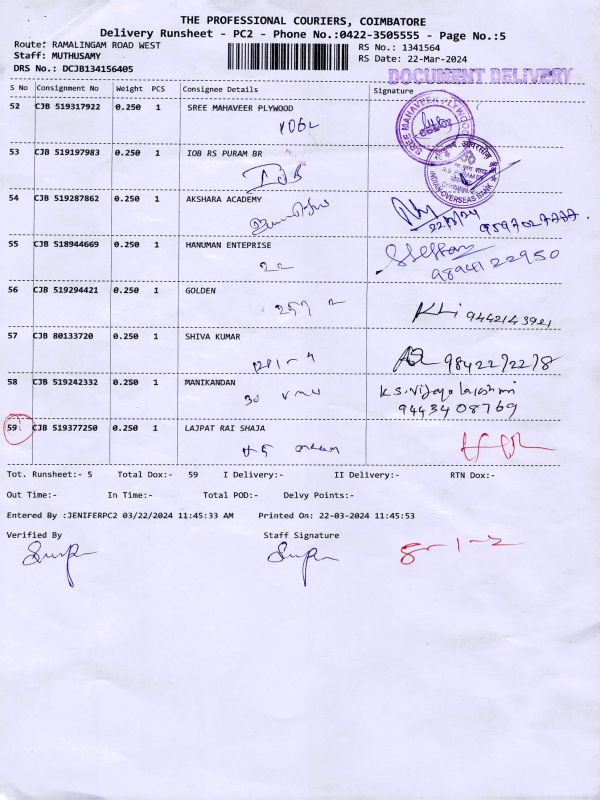 THE PROFESSIONAL COURIERS, COIMBATORE
Delivery Runsheet - PC2 - Phone No.:0422-3505555 - Page No.:5
Route: RAMALINGAM ROAD WEST
Staff: MUTHUSAMY
DRS No.: DCJB134156405
RS No.: 1341564
RS Date: 22-Mar-2024
DOCUMENT DELIVERY
S No Consignment No Weight PCS Consignee Details Signature
52 CJB 519317922 0.250 1 SREE MAHAVEER PLYWOOD
SREE MAHAVEER PLYWOOD
53 CJB 519197983 0.250 1 IOB RS PURAM BR
IOB
INDIAN OVERSEAS BANK
54 CJB 519287862 0.250 1 AKSHARA ACADEMY
55 CJB 518944669 0.250 1 HANUMAN ENTEPRISE
22
9894122950
56 CJB 519294421 0.250 1 GOLDEN
9442143921
57 CJB 80133720 0.250 1 SHIVA KUMAR
9842212218
58 CJB 519242332 0.250 1 MANIKANDAN
30
K.S. Vijaya lakshmi
9443408769
59 CJB 519377250 0.250 1 LAJPAT RAI SHAJA
Tot. Runsheet:- 5 Total Dox:- 59 I Delivery:- II Delivery:- RTN Dox:-
Out Time:- In Time:- Total POD:- Delvy Points:-
Entered By :JENIFERPC2 03/22/2024 11:45:33 AM Printed On: 22-03-2024 11:45:53
Verified By Staff Signature
8-1-2